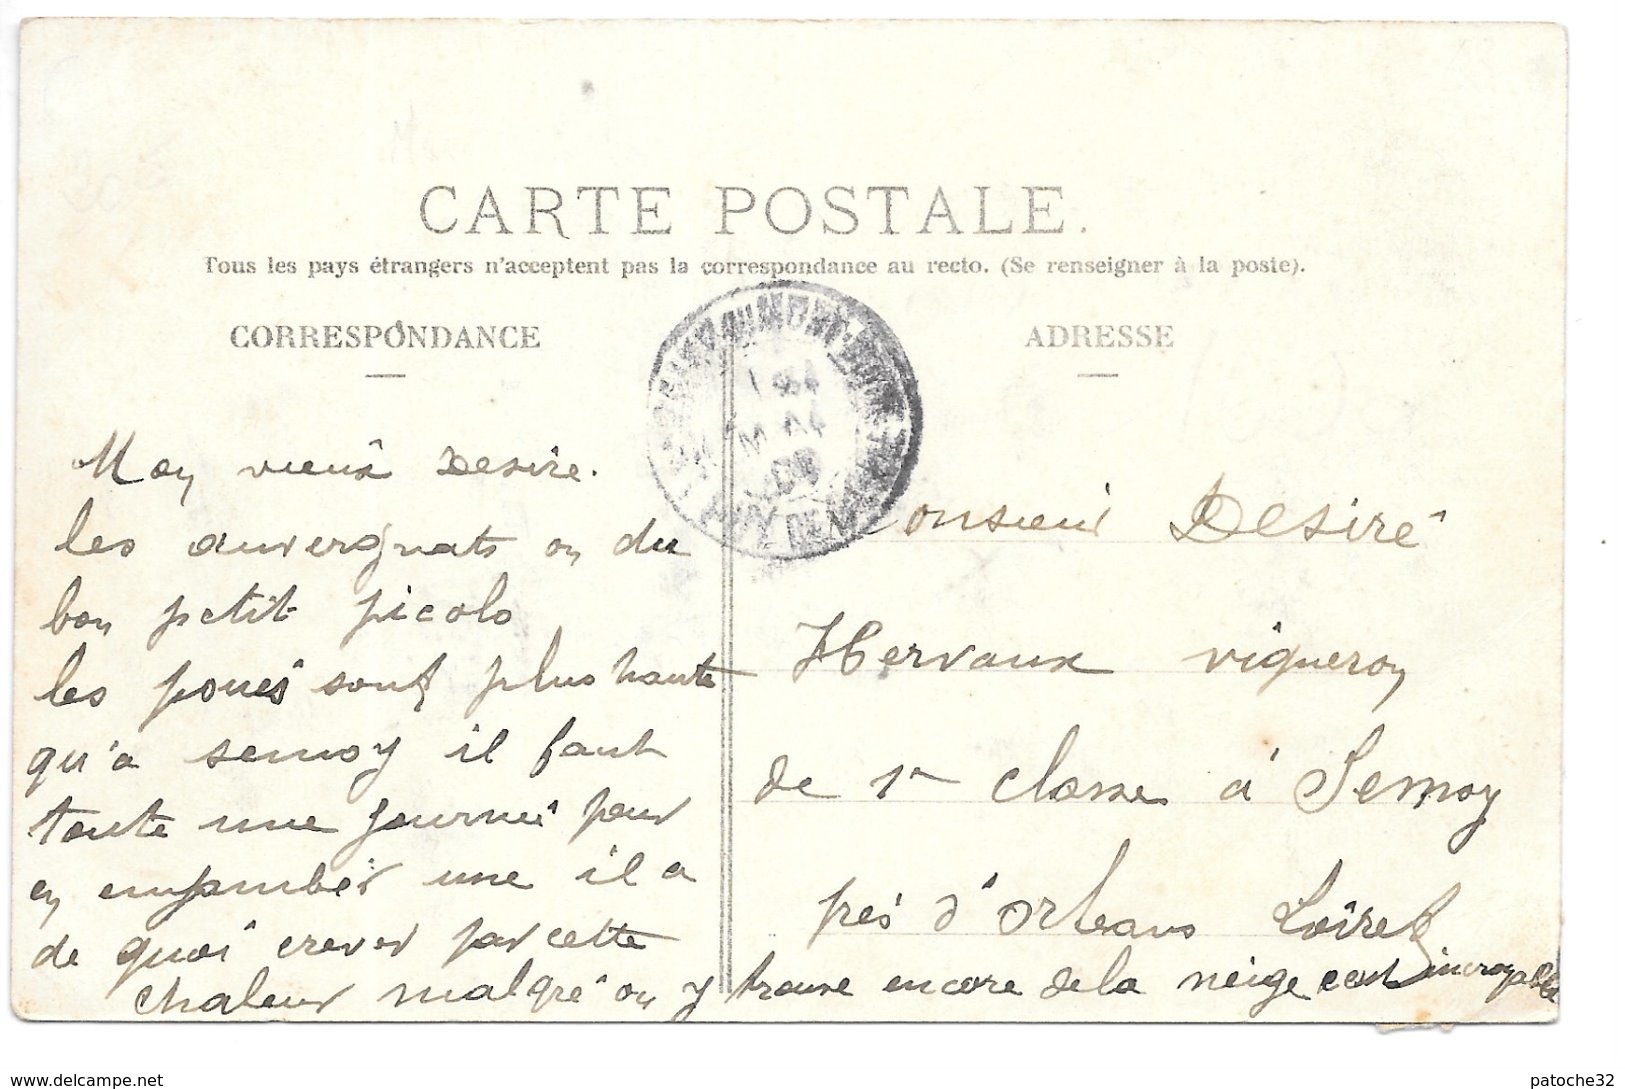 CARTE POSTALE.
Tous les pays étrangers n'acceptent pas la correspondance au recto. (Se renseigner à la poste).
CORRESPONDANCE
ADRESSE
Mon vieux Desire.
les auvergnats on du
bon petit picolo
les pouës sont plus haute
qu'a semoy il faut
toute une journeé pour
en enjamber une il a
de quoi crever par cette
chaleur malgré on y trouve encore de la neige cest incroyable
Monsieur Desiré
Hervaux vigneron
de 1r classe à Semoy
près d'Orleans Loiret
PUY DE
www.delcampe.net
patoche32